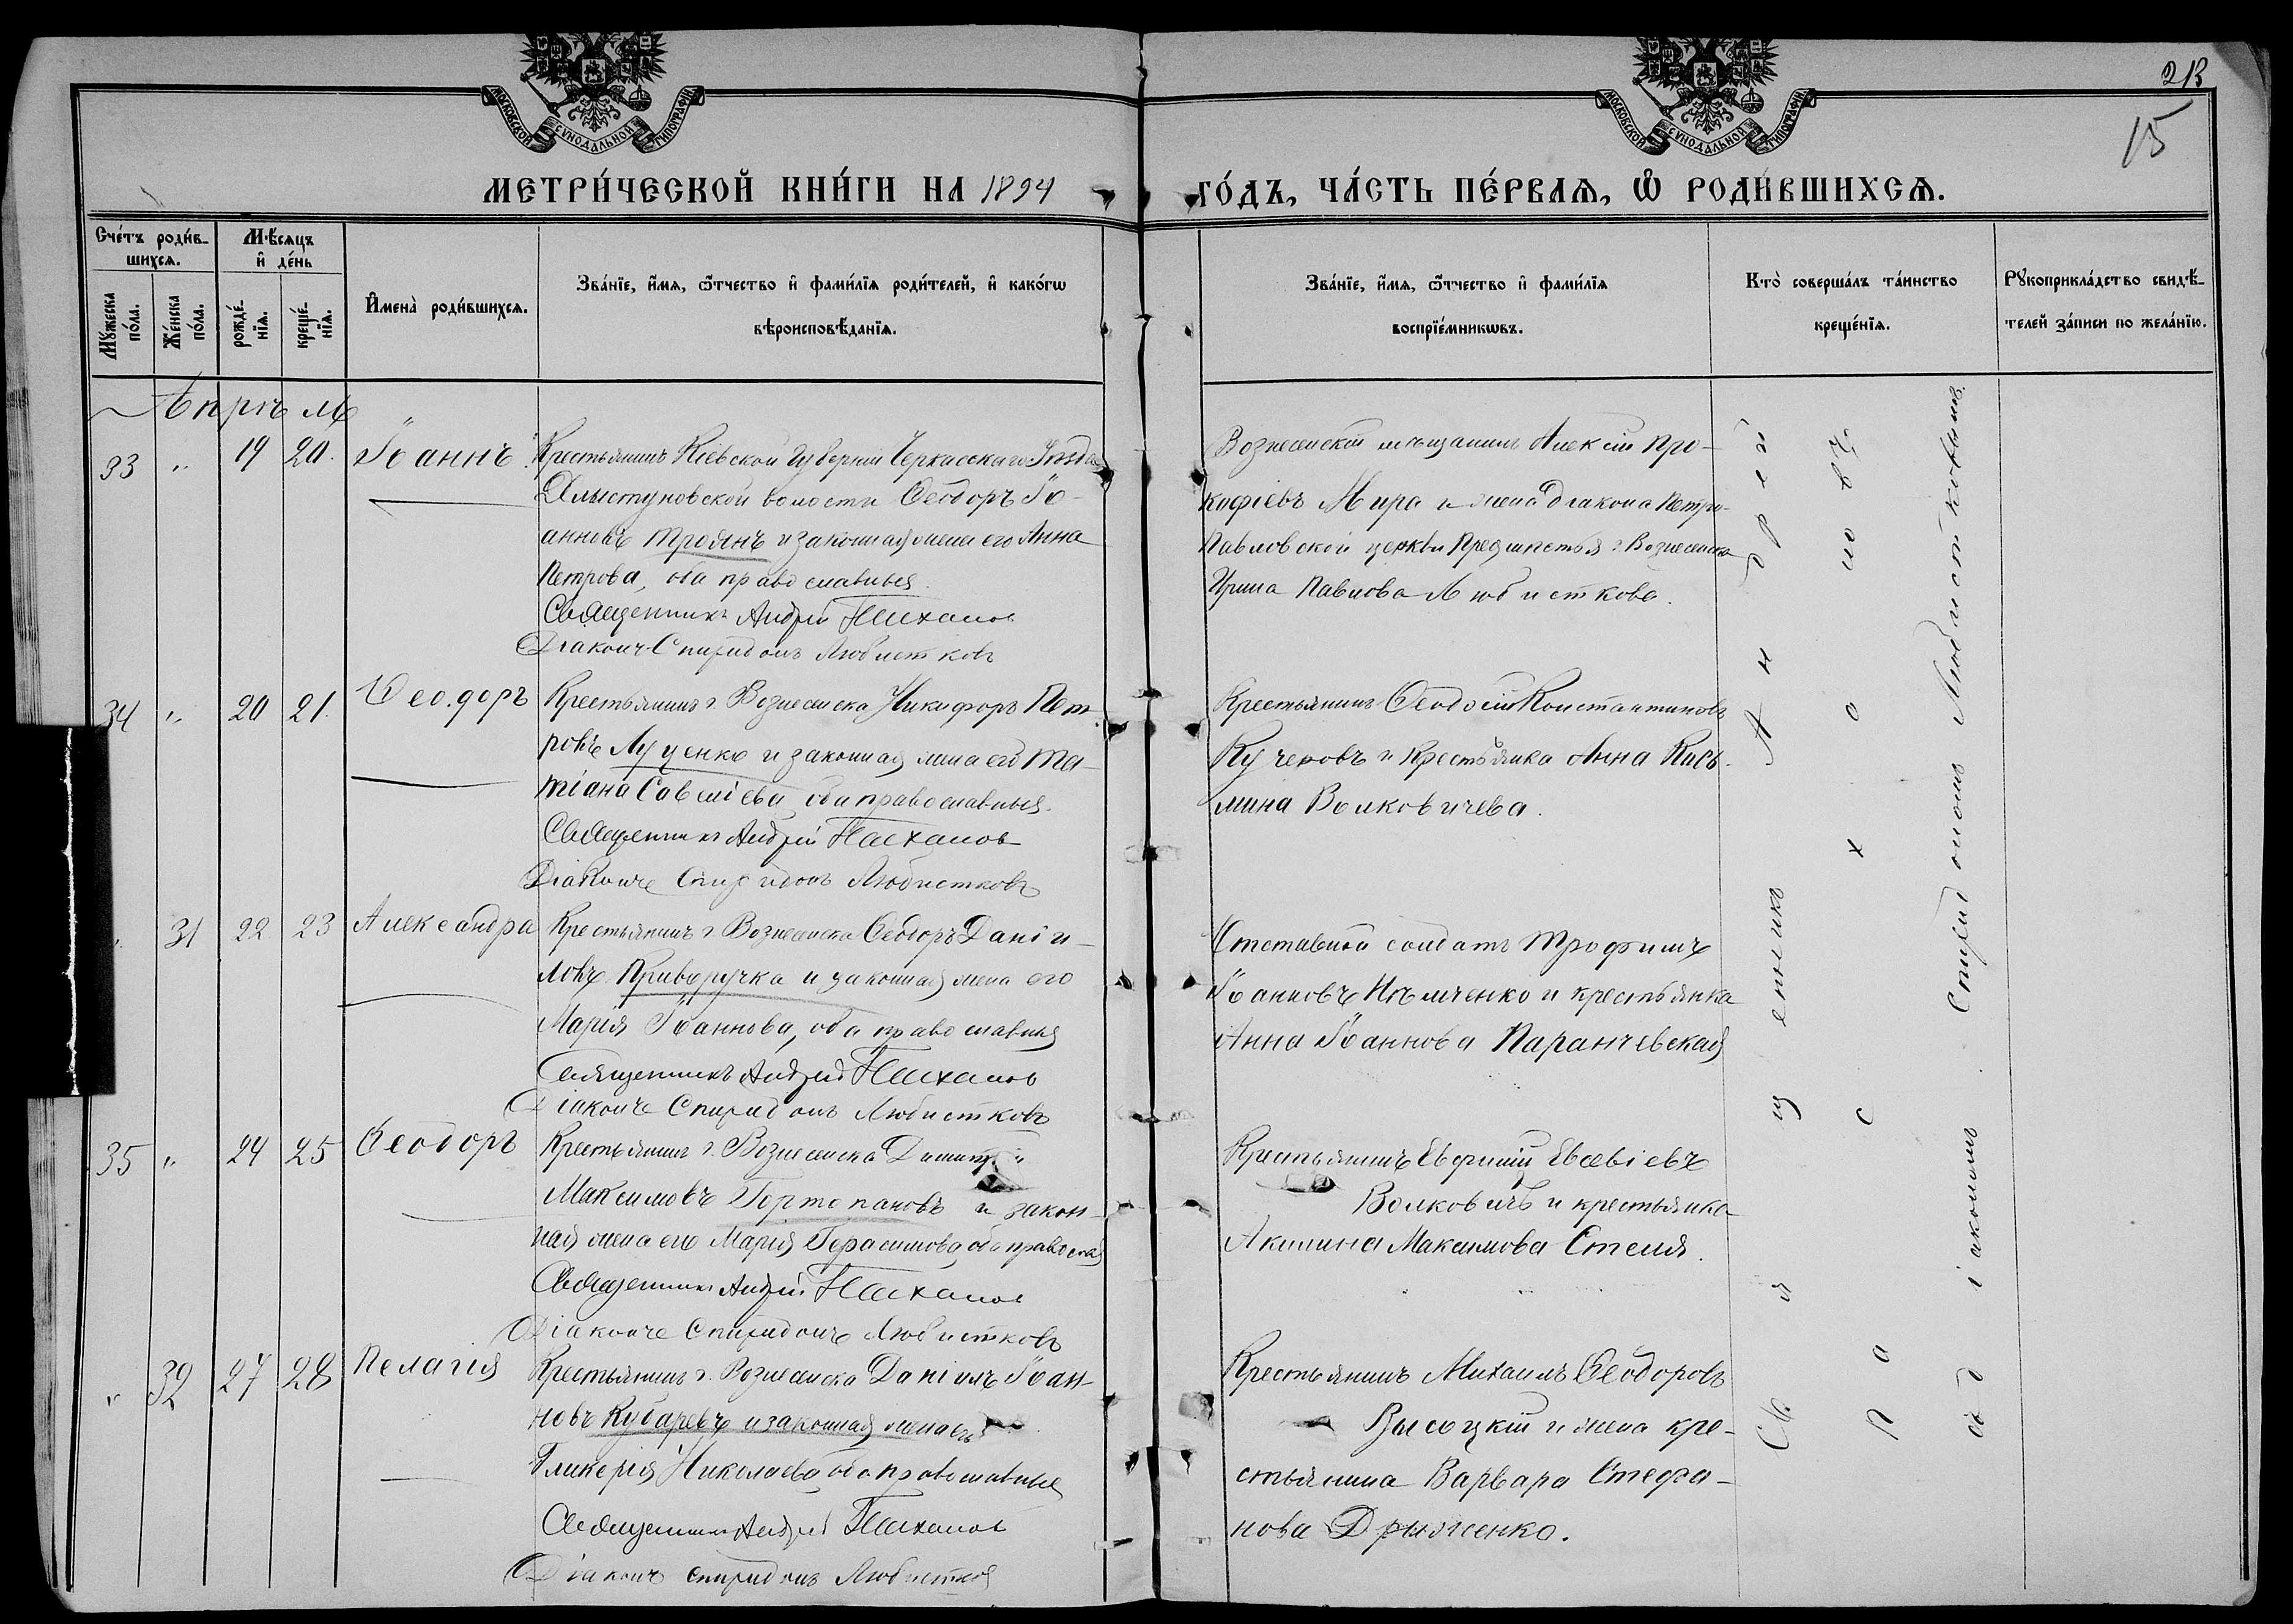 213
15
МОСКОВСКОЙ СѴНОДАЛЬНОЙ ТИПОГРАФІИ
МОСКОВСКОЙ СѴНОДАЛЬНОЙ ТИПОГРАФІИ
МЕТРИ́ЧЕСКОЙ КНИ́ГИ НА 1894
ГО́ДЪ, ЧА́СТЬ ПЕ́РВАѦ, Ѡ҆ РОДИ́ВШИХСѦ.
Сче́тъ роди́в-
шихсѧ.
Мꙋ́жеска
по́ла.
Же́нска
по́ла.
Мѣ́сѧцъ
и҆ де́нь
рожде́-
нїѧ.
креще́-
нїѧ.
И҆мена̀ роди́вшихсѧ.
Зва́нїе, и҆́мѧ, ѻ҆́тчество и҆ фами́лїѧ роди́телей, и҆ како́гѡ
вѣроисповѣ́данїѧ.
Зва́нїе, и҆́мѧ, ѻ҆́тчество и҆ фами́лїѧ
воспрїе́мникѡвъ.
Кто̀ соверша́лъ та́инство
креще́нїѧ.
Рꙋкоприкла́дство свидѣ́-
телей за́писи по жела́нїю.
Апрѣль
33 " 19 20. Іоаннъ
Крестьянинъ Кіевской губерніи Черкасскаго Уѣзда
волости Ѳеодоръ Іо-
анновъ Троянъ и законная жена его Анна
Петрова, оба православные.
Священникъ Андрей Пасхалов
Діаконъ Спиридонъ Любистковъ
Вознесенскій мѣщанинъ Алексій Про-
кофіевъ Мира и жена діакона Петро-
Павловской церкви Предмѣстья г. Вознесенска
Ирина Павлова Любисткова.
34 " 20 21. Ѳеодоръ
Крестьянинъ г. Вознесенска Никифоръ Пет-
ровъ Луценко и законная жена его Та-
тіана Савеліева, оба православные.
Священникъ Андрей Пасхалов
Діаконъ Спиридонъ Любистковъ
Крестьянинъ Ѳеодосій Константиновъ
Кучеровъ и Крестьянка Анна Кась-
мина Волковичева.
" 31 22 23 Александра
Крестьянинъ г. Вознесенска Ѳеодоръ Даніи-
ловъ Приворучка и законная жена его
Марія Іоаннова, оба православные
Священникъ Андрей Пасхалов
Діаконъ Спиридонъ Любистковъ
Отставной солдатъ Трофимъ
Іоанновъ Нѣмченко и крестьянка
Анна Іоаннова Паранчевская
35 " 24 25 Ѳеодоръ
Крестьянинъ г. Вознесенска Димитрій
Максимовъ Гортопановъ и закон-
ная жена его Марія Герасимова, оба правосла
Священникъ Андрей Пасхалов
Діаконъ Спиридонъ Любистковъ
Крестьянинъ Евфимій Евсевіевъ
Волковичъ и крестьянка
Акилина Максимова Стеля.
" 32 27 28 Пелагія
Крестьянинъ г. Вознесенска Даніилъ Іоан-
новъ Кубаревъ и законная жена его
Гликерія Николаева, оба православные
Священникъ Андрей Пасхалов
Діаконъ Спиридонъ Любистков
Крестьянинъ Михаилъ Ѳеодоровъ
Высоцкій и жена кре-
стьянина Варвара Стефа-
нова Дрыженко.
Священникъ Андрей
Пасхаловъ
съ діакономъ Спиридономъ Любистковымъ.